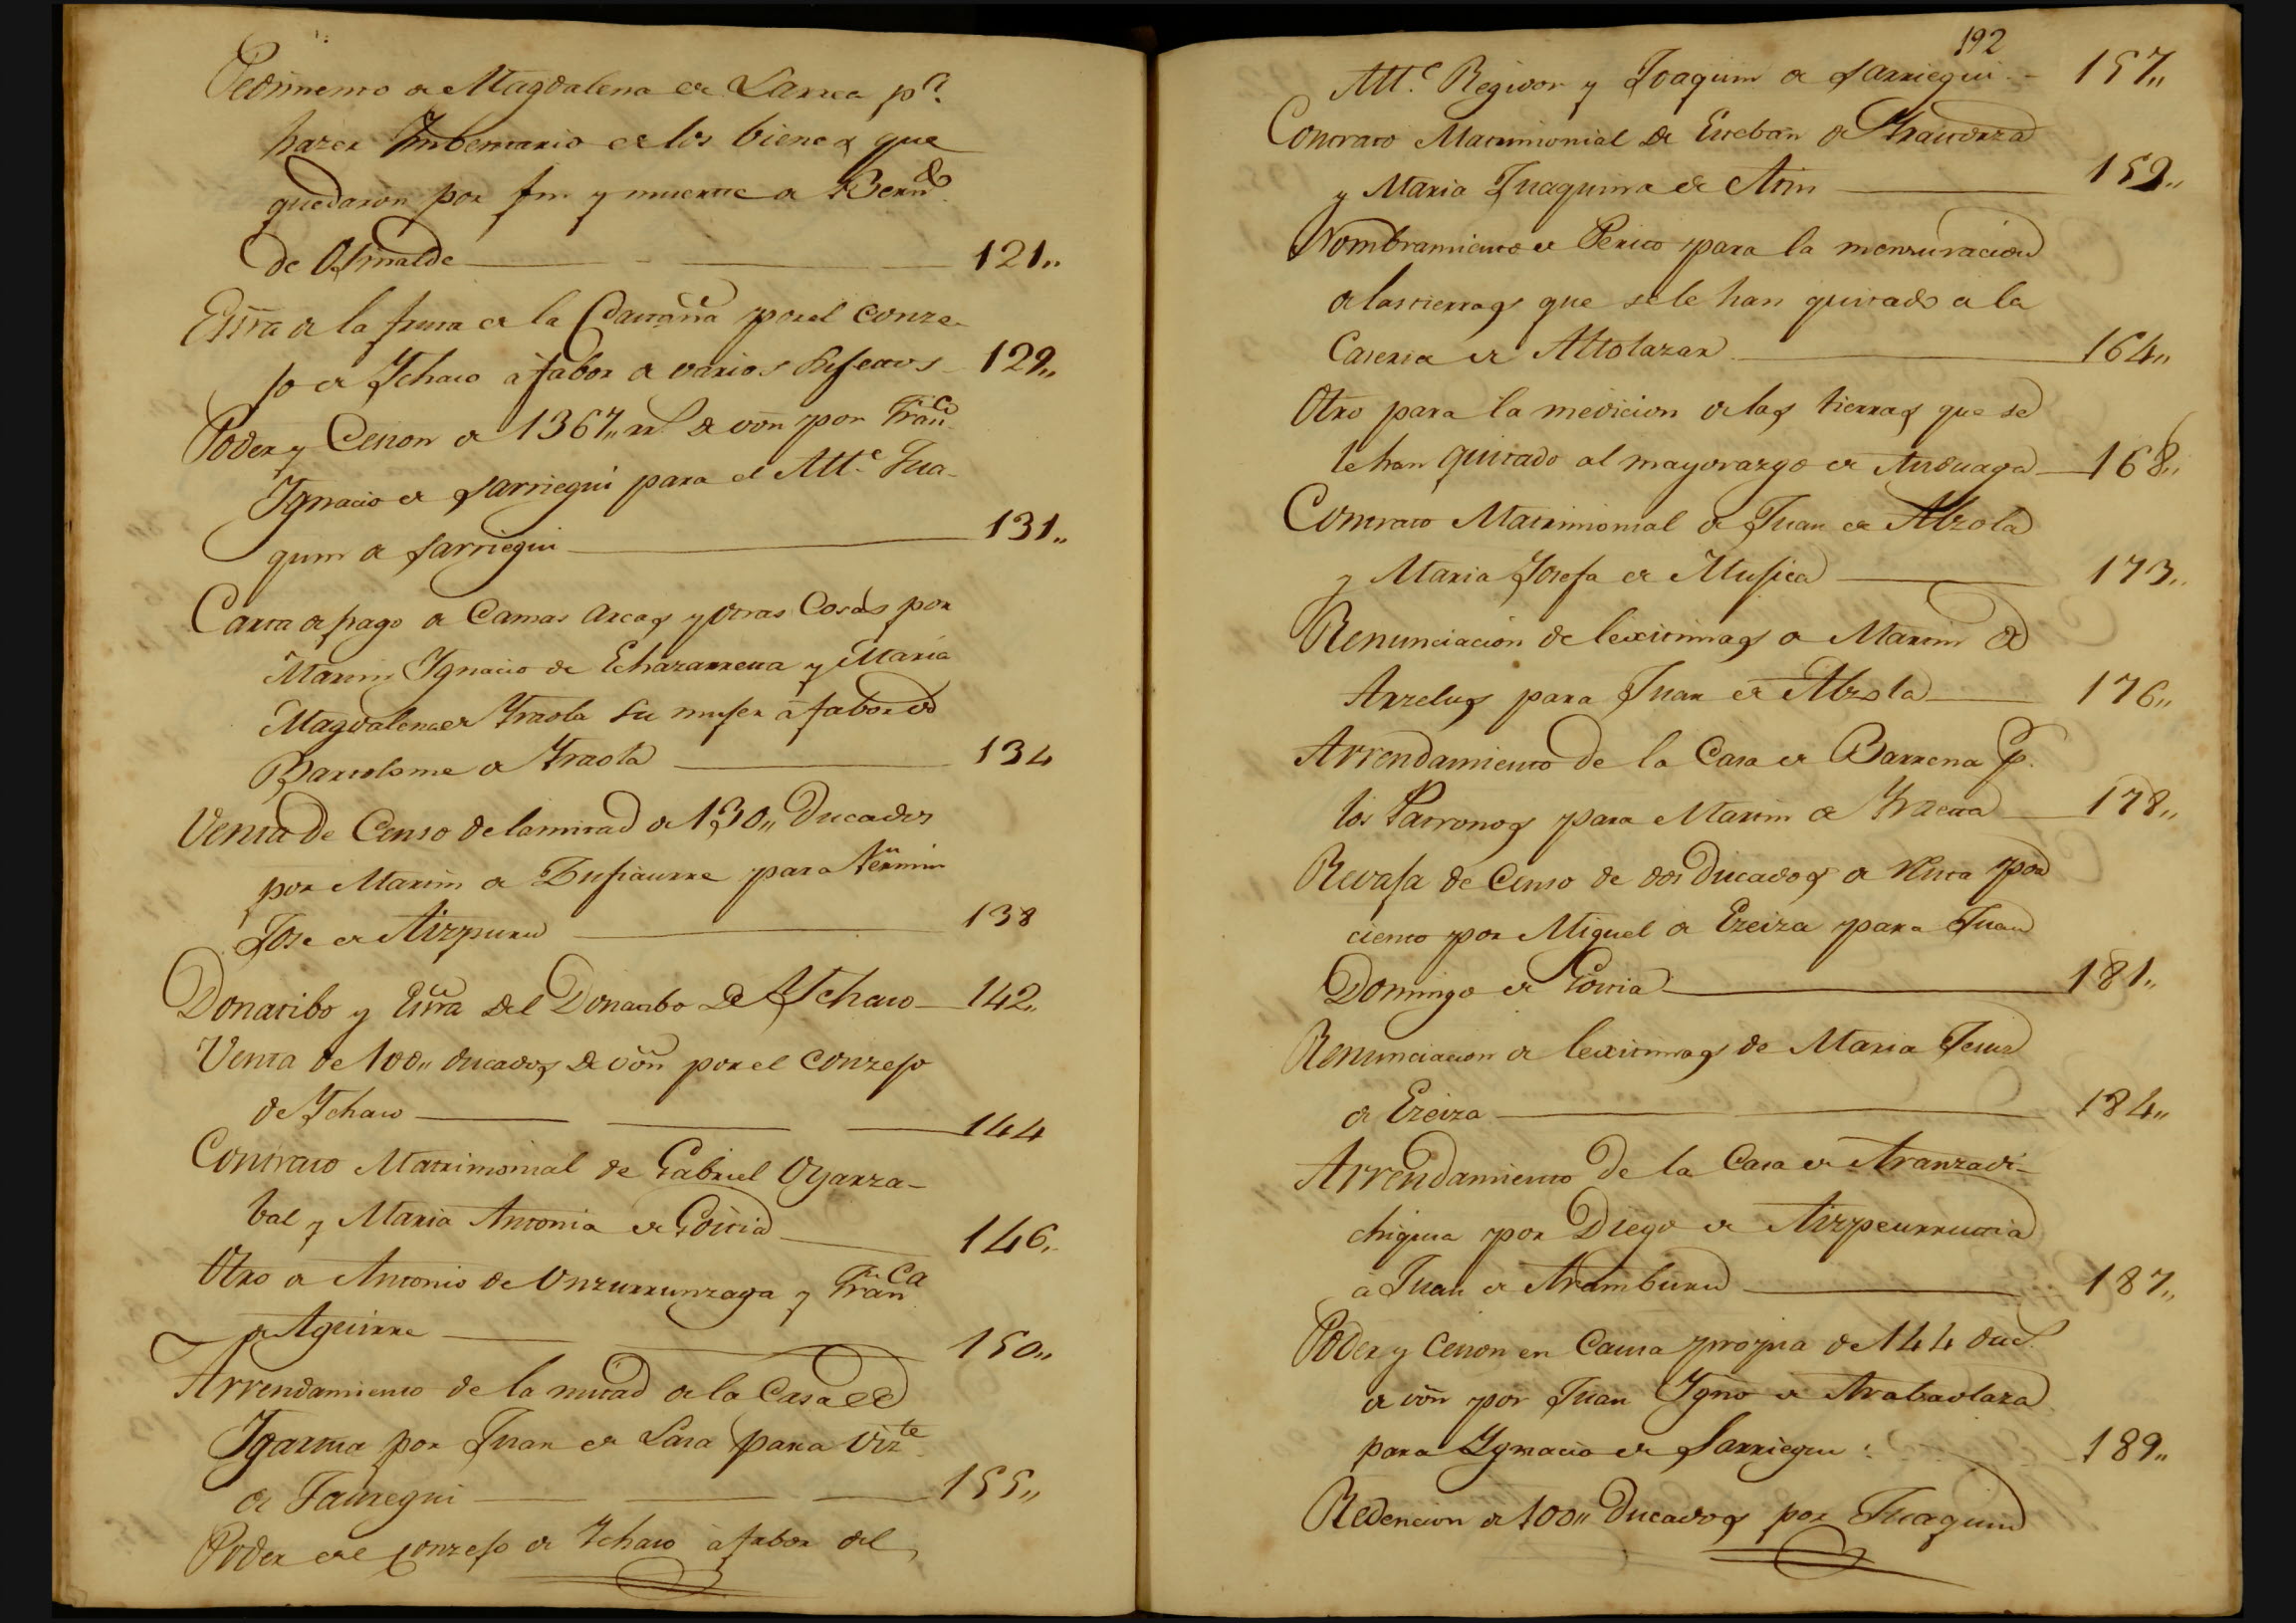 Pedimento de Magdalena de Larrea pª.
hazer Imbentario de los bienes que
quedaron por fin y muerte de Bernᵈᵒ
de Osinalde 121,,
Escrª de la fruta de la Castaña por el conze-
jo de Ychaso á fabor de varios sujetos 129,,
Poder y Cesion de 1367,, rs de von por Franᶜᵒ
Ygnacio de Sarriegui para el Attᵉ Jua-
quin de Sarriegui 131,,
Carta de pago de Camas Arcas y otras Cosas por
Martin Ygnacio de Echazarreta y Maria
Magdalena de Yraola su mujer á fabor de
Bartolome de Yraola 134
Venta de Censo de la mitad de 130,, Ducados
por Martin de Insaurre para Fermin
Jose de Aizpuru 138
Donatibo y Escrª del Donatibo De Ychaso 142,,
Venta de 100,, ducados de von por el conzejo
de Ychaso 144
Contrato Matrimonial de Gabriel Oyarza-
bal y Maria Antonia de Goitia 146,,
Otro de Antonio de Unzurrunzaga y Franᶜᵃ
de Aguirre 150,,
Arrendamiento de la mitad de la Casa de
Ygartua por Juan de Lasa para Vizᵗᵉ
de Jauregui 155,,
Poder del conzejo de Ychaso á fabor del
192
Attᵉ Regidor y Joaquin de Sarriegui 157,,
Contrato Matrimonial de Esteban de
y Maria Juaquina de 159,,
Nombramiento de Perito para la mensuracion
de las tierras que se le han quitado a la
Caseria de Altolazar 164,,
Otro para la medicion de las tierras que se
le han quitado al mayorazgo de Anduaga 168,,
Contrato Matrimonial de Juan de Alzola
y Maria Josefa de Mujica 173,,
Renunciacion de lexitimas de Martin de
Arzelus para Juan de Alzola 176,,
Arrendamiento de la Casa de Barrena p.
los Patronos para Martin de Yraeta 178,,
Revaja de Censo de dos Ducados de renta por
ciento por Miguel de Ezeiza para Juan
Domingo de Goitia 181,,
Renunciacion de lexitimas de Maria Jesus
de Ezeiza 184,,
Arrendamiento de la Casa de Aranzadi-
chiquia por Diego de Aizpeurrutia
a Juan de Aramburu 187,,
Poder y Cesion en Causa propia de 144 ducˢ
de von por Juan Ygnº de Arabaolaza
para Ygnacio de Sarriegui 189,,
Redencion de 100,, Ducados por Juaquin